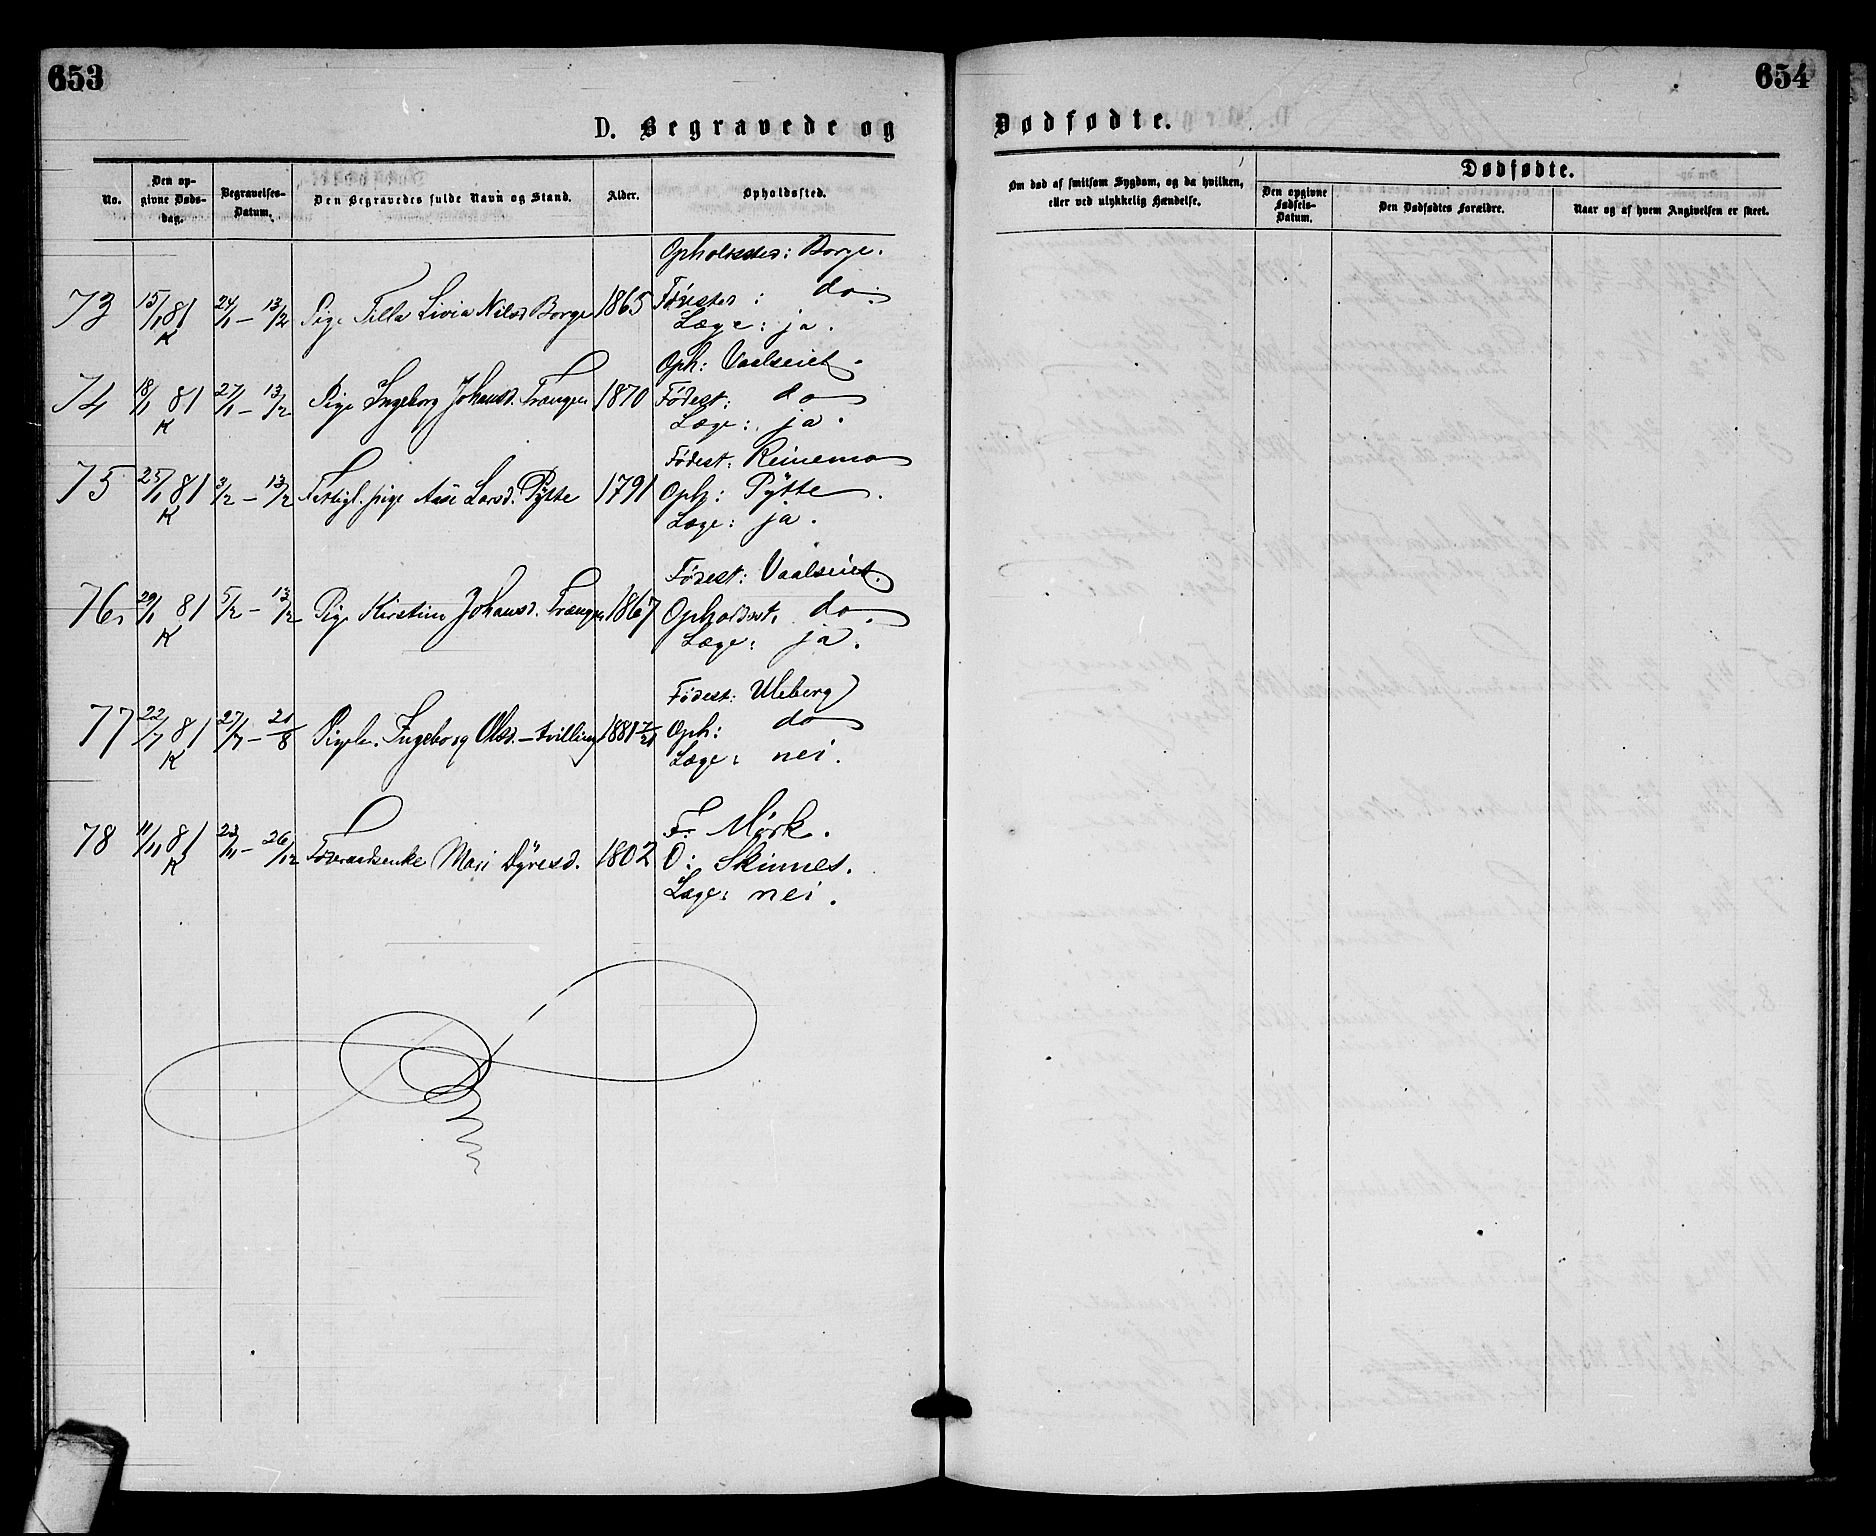 653
D. Begravede og
No.
Den opgivne Dødsdag.
Begravelses-Datum.
Den Begravedes fulde Navn og Stand.
Alder.
Opholdssted.
Opholdssted: Borge.
73 15/1 81 24/1 – 13/2 Pige Tilla Livia Nilsd Borge 1865 Fødested: do
K Læge: ja.
Oph: Vaalseiet
74 18/1 81 27/1 – 13/2 Pige Ingeborg Johansd. Trængen 1870 Fødest: do
K Læge: ja.
Fødest: Reinemo
75 25/1 81 3/2 – 13/2 Fattigl. pige Aase Larsd. Pytte 1791 Oph: Pytte.
K Læge: ja.
Fødest: Vaalseiet.
76, 29/1 81 5/2 – 13/2 Pige Kirstine Johansd. Trængen 1867 Opholdsst. do.
K Læge: ja.
Fødest: Uleberg
77 22/7 81 27/7 – 21/8 Pigeb. Ingeborg Olsd. – tvilling 1881 Oph: do
K Læge: nei.
F: Mörk.
78 11/11 81 23/11 – 26/12 Føderaadsenke Mari Dyresd. 1802 O: Skinnes.
K Læge: nei.
654
Dødfødte.
Om død af smitsom Sygdom, og da hvilken,
eller ved ulykkelig Hændelse.
Dødfødte.
Den opgivne Fødsels-Datum.
Den Dødfødtes Forældre.
Naar og af hvem Angivelsen er skeet.